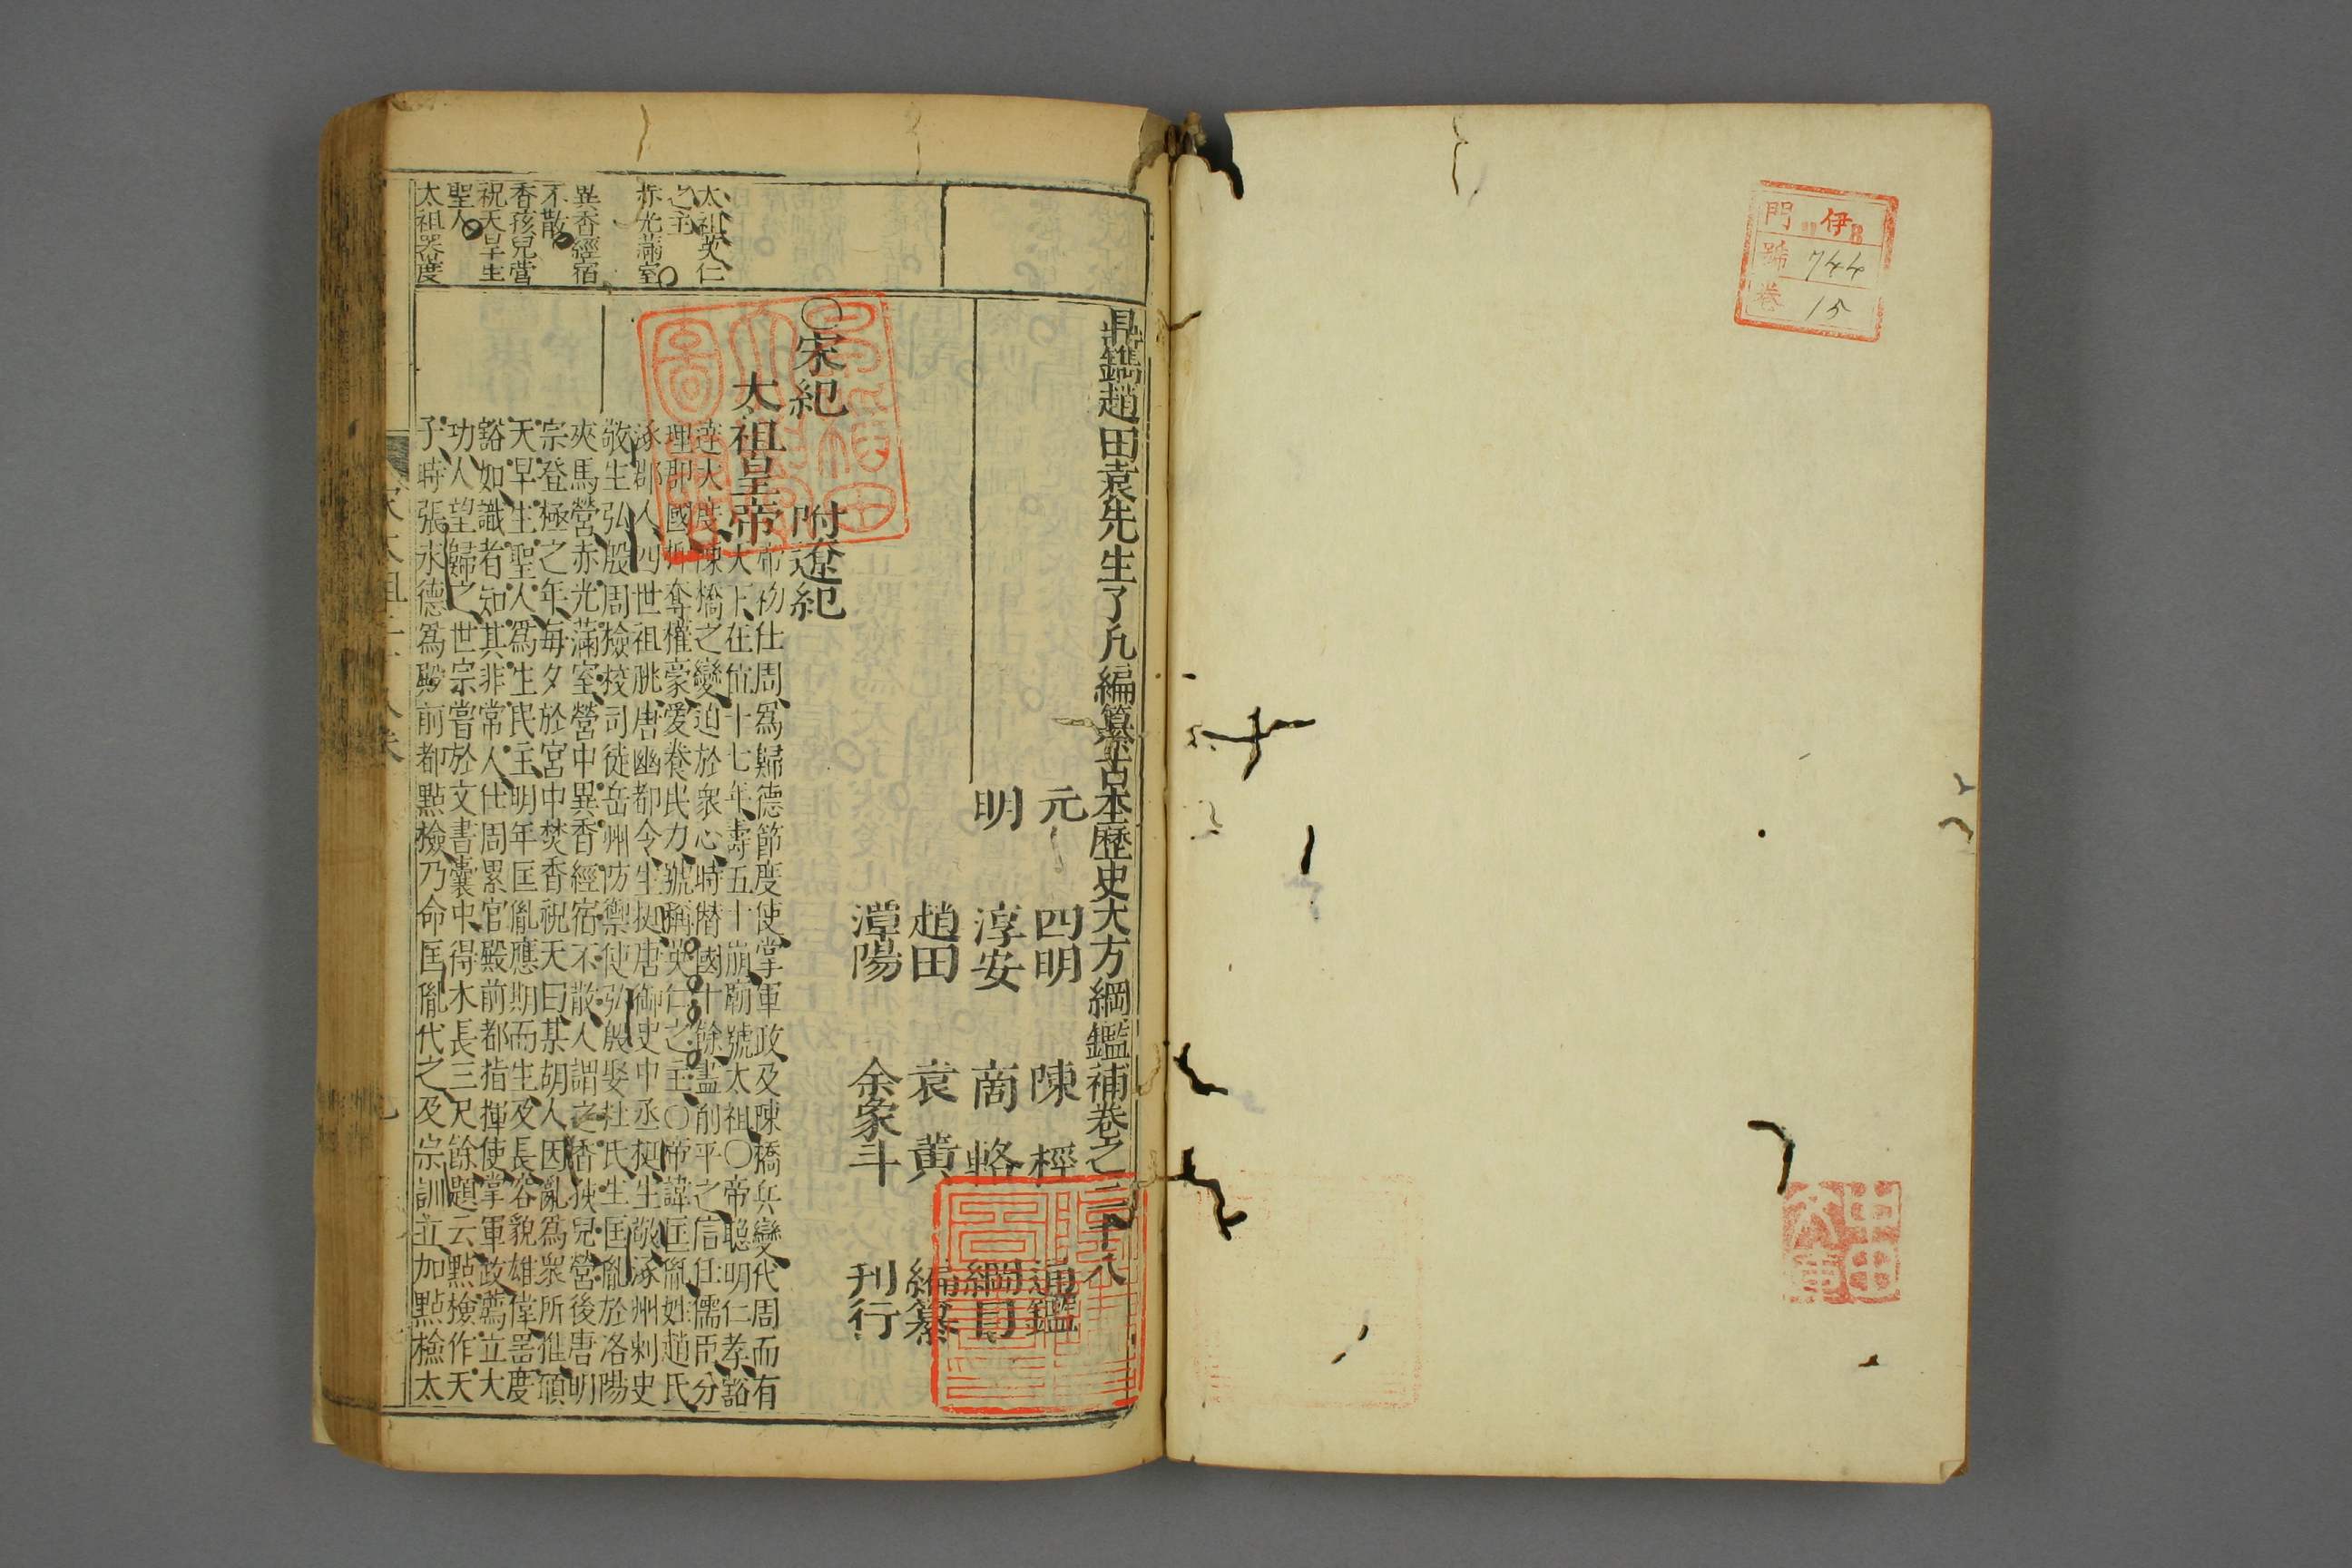 門 伊
號 744
卷 15
鼎鐫趙田袁先生了凡編纂古本歷史大方綱鑑補卷之二十八
元 四明 陳 桱 通鑑
明 淳安 商 輅 綱目
趙田 袁 黃 編纂
潭陽 余象斗 刊行
○宋紀 附遼紀
太祖皇帝
帝初仕周爲歸德節度使掌軍政及陳橋兵變代周而有
天下在位十七年壽五十崩廟號太祖○帝聰明仁孝豁
達大度陳橋之變迫於衆心時僭國十餘盡削平之信任儒臣分
理郡國抑奪權豪愛養民力號稱英仁之主○帝諱匡胤姓趙氏
涿郡人四世祖朓唐幽都令生珽唐御史中丞珽生敬涿州刺史
敬生弘殷周檢校司徒岳州防禦使弘殷娶杜氏生匡胤於洛陽
夾馬營赤光滿室營中異香經宿不散人謂之香孩兒營後唐明
宗登極之年每夕於宮中焚香祝天曰某胡人因亂爲衆所推願
天早生聖人爲生民主明年匡胤應期而生及長容貌雄偉器度
豁如識者知其非常人仕周累官殿前都指揮使掌軍政薦立大
功人望歸之世宗嘗於文書囊中得木長三尺餘題云點檢作天
子時張永德爲殿前都點檢乃命匡胤代之及宗訓立加點檢太
太祖英仁
之主
赤光滿室
異香經宿
不散
香孩兒營
祝天早生
聖人
太祖器度